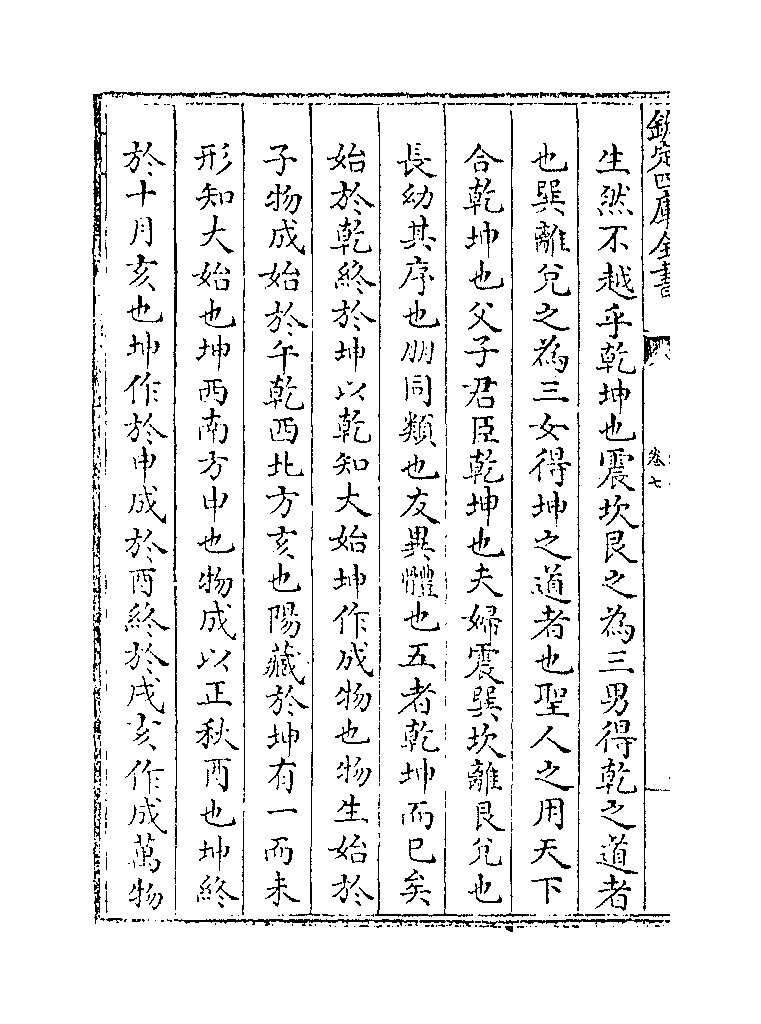 欽定四庫全書
卷七
生然不越乎乾坤也震坎艮之為三男得乾之道者
也巽離兌之為三女得坤之道者也聖人之用天下
合乾坤也父子君臣乾坤也夫婦震巽坎離艮兌也
長幼其序也朋同類也友異體也五者乾坤而已矣
始於乾終於坤以乾知大始坤作成物也物生始於
子物成始於午乾西北方亥也陽藏於坤有一而未
形知大始也坤西南方申也物成以正秋酉也坤終
於十月亥也坤作於申成於酉終於戌亥作成萬物